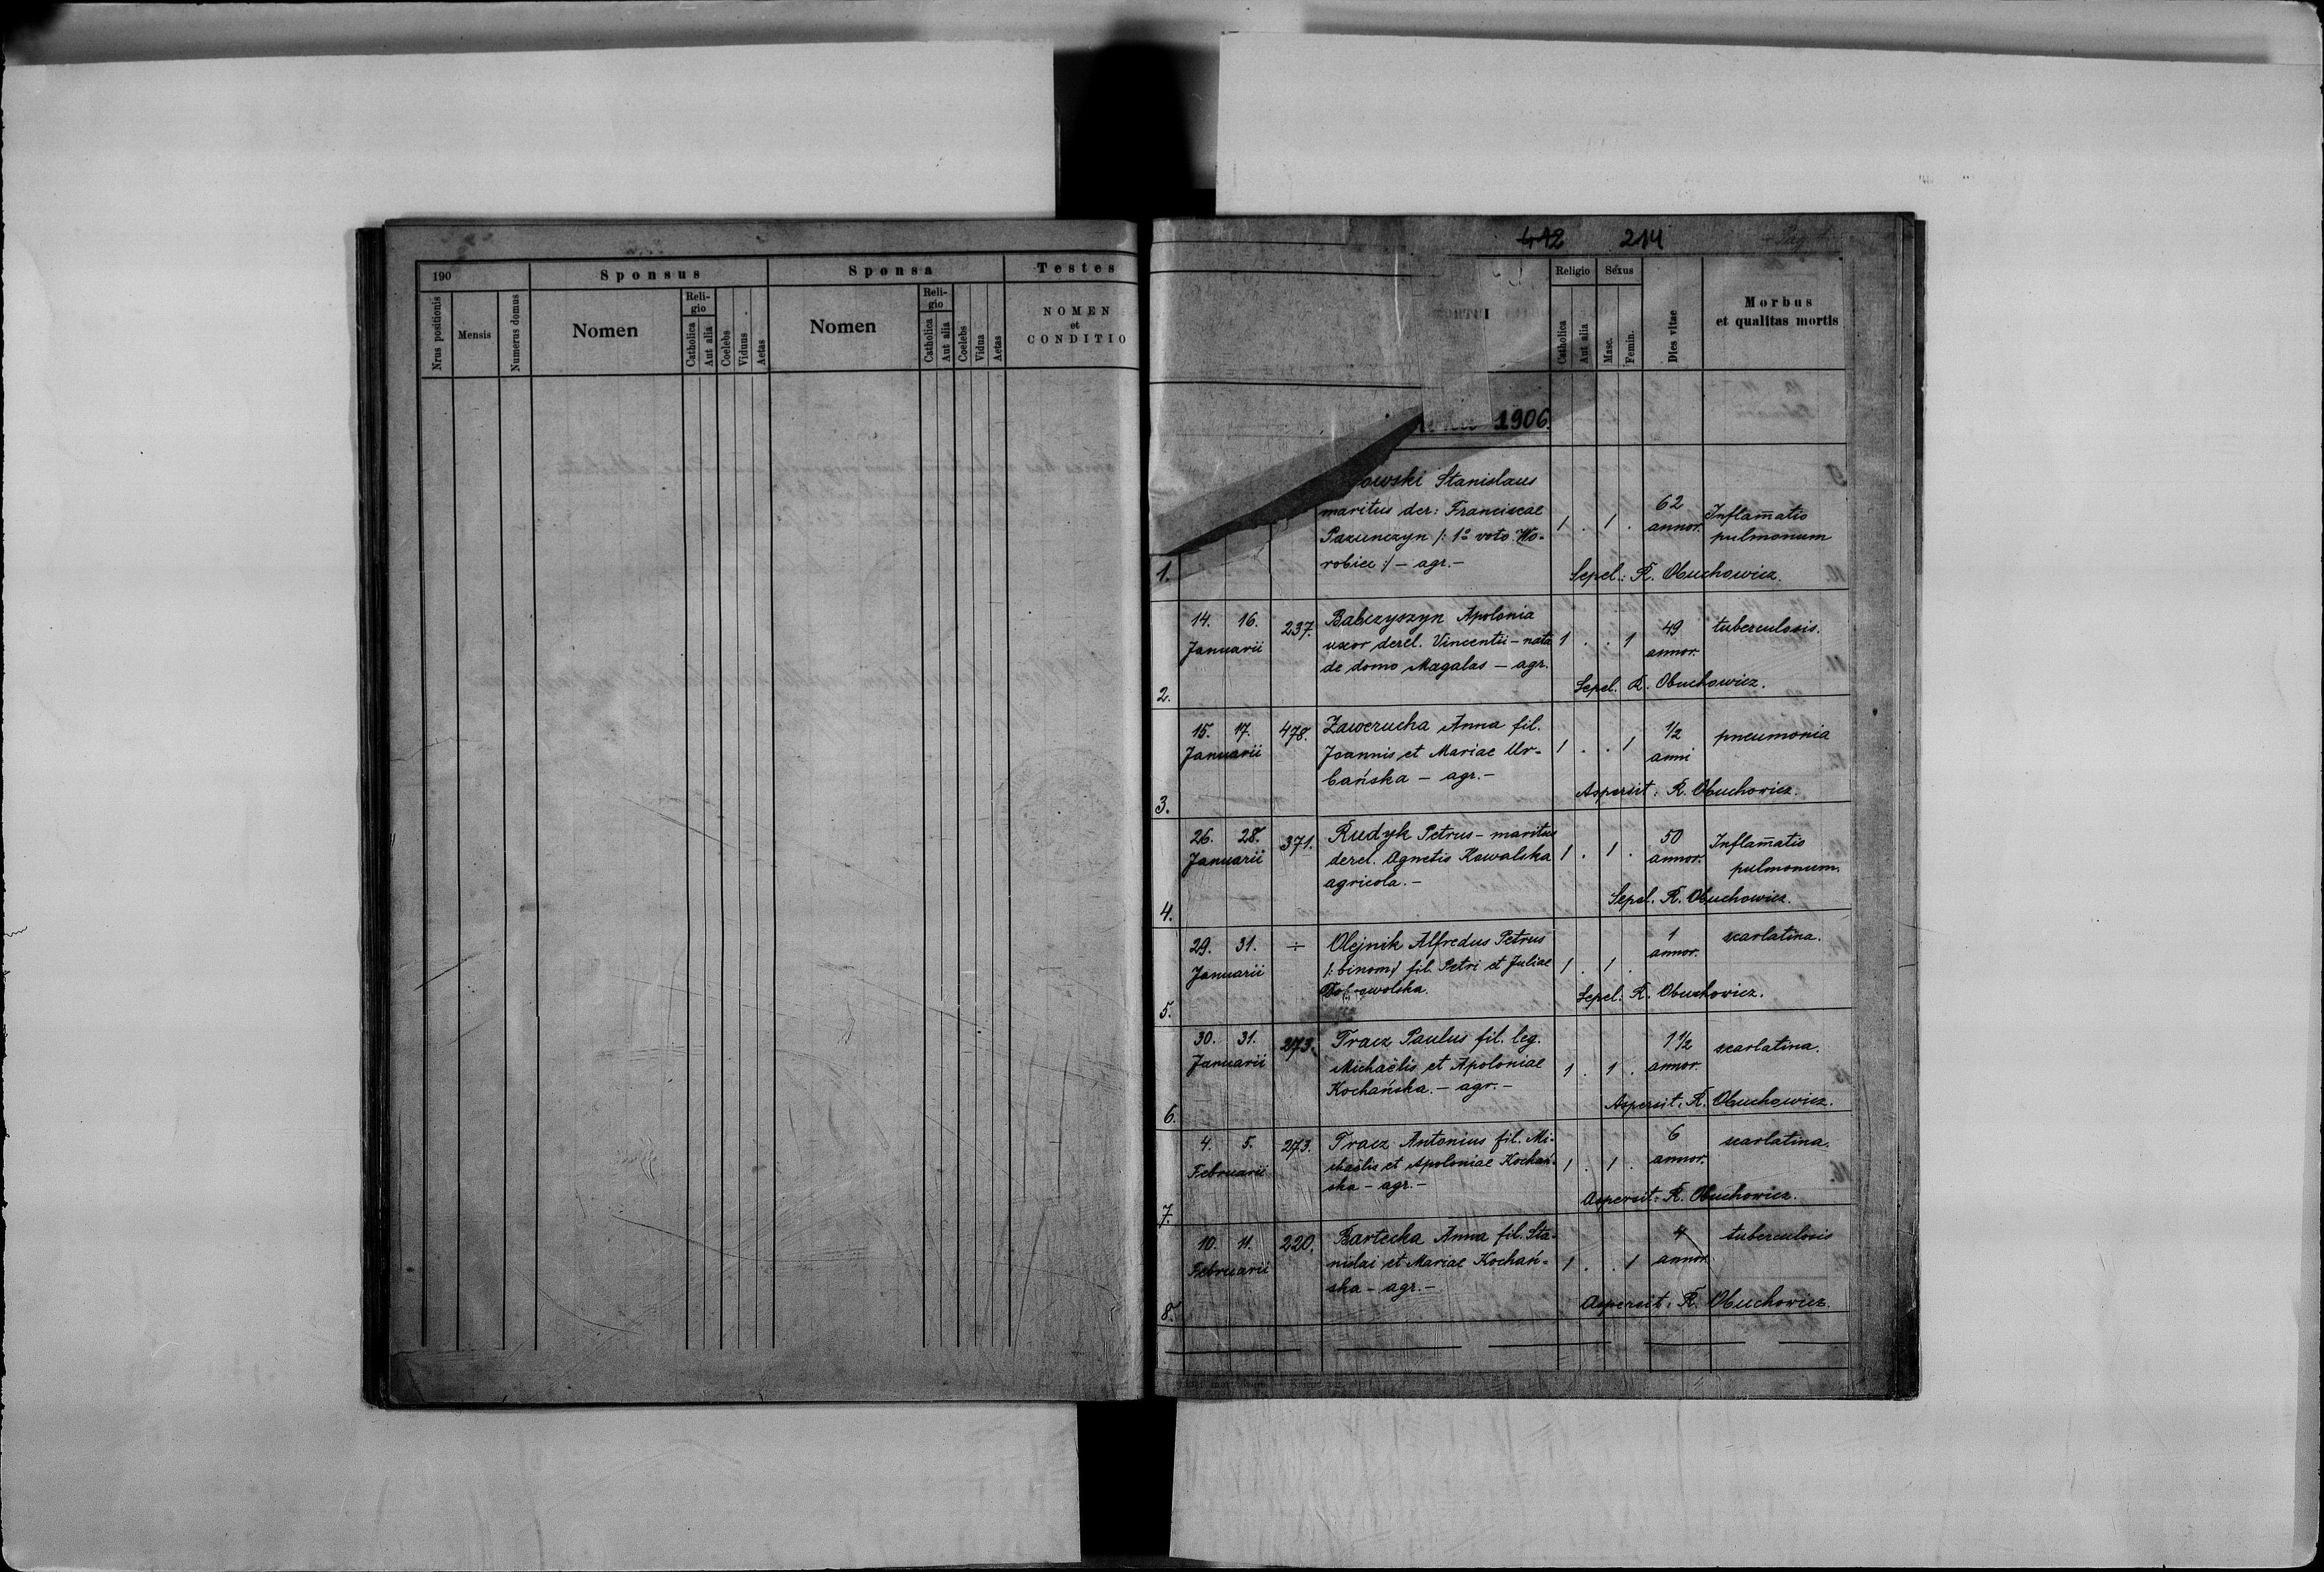 190
Sponsus
Sponsa
Testes
Nrus positionis
Mensis
Numerus domus
Nomen
Reli-
gio
Catholica
Aut alia
Coelebs
Viduus
Aetas
Nomen
Reli-
gio
Catholica
Aut alia
Coelebs
Vidua
Aetas
NOMEN
et
CONDITIO
412 214
Religio
Sexus
Catholica
Aut alia
Masc.
Femin.
Dies vitae
Morbus
et qualitas mortis
1906
1.
owski Stanislaus
maritus der: Franciscae
Pazunczyn /: 1º voto Wo-
robiec :/ - agr. -
1 . 1 .
62
annor.
Inflam̄atio
pulmonum
Sepel.: R. Obuchowicz.
2.
14. 16.
Januarii
237.
Babczyszyn Apolonia
uxor derel. Vincentii - nata
de domo Magalas - agr.
1 . . 1
49
annor.
tuberculosis.
Sepel. R. Obuchowicz.
3.
15. 17.
Januarii
478.
Zawerucha Anna fil.
Joannis et Mariae Ur-
bańska - agr. -
1 . . 1
1/2
anni
pneumonia
Aspersit: R. Obuchowicz.
4.
26. 28.
Januarii
371.
Rudyk Petrus - maritus
derel. Agnetis Kowalska
agricola. -
1 . 1 .
50
annor.
Inflam̄atio
pulmonum.
Sepel. R. Obuchowicz.
5.
29. 31.
Januarii
÷
Olejnik Alfredus Petrus
/: binom:/ fil. Petri et Juliae
1 . 1 .
1
annor.
scarlatina.
Sepel: R. Obuchowicz.
6.
30. 31.
Januarii
273.
Tracz Paulus fil. leg.
Michaëlis et Apoloniae
Kochańska. - agr. -
1 . 1 .
1 1/2
annor.
scarlatina.
Aspersit: R. Obuchowicz.
7.
4. 5.
Februarii
273.
Tracz Antonius fil. Mi-
chaëlis et Apoloniae Kochań-
ska - agr. -
1 . 1 .
6
annor.
scarlatina.
Aspersit: R. Obuchowicz.
8.
10. 11.
Februarii
220.
Bartecka Anna fil. Sta-
nislai et Mariae Kochań-
ska - agr. -
1 . . 1
4
annor.
tuberculosis
Aspersit: R. Obuchowicz.